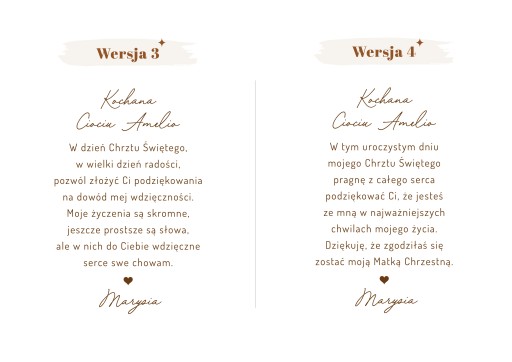 Wersja 3
Kochana
Ciociu Amelio
W dzień Chrztu Świętego,
w wielki dzień radości,
pozwól złożyć Ci podziękowania
na dowód mej wdzięczności.
Moje życzenia są skromne,
jeszcze prostsze są słowa,
ale w nich do Ciebie wdzięczne
serce swe chowam.
Marysia
Wersja 4
Kochana
Ciociu Amelio
W tym uroczystym dniu
mojego Chrztu Świętego
pragnę z całego serca
podziękować Ci, że jesteś
ze mną w najważniejszych
chwilach mojego życia.
Dziękuję, że zgodziłaś się
zostać moją Matką Chrzestną.
Marysia